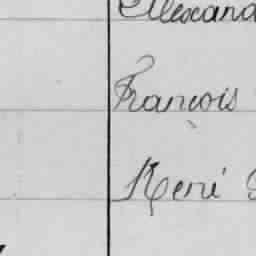 Alexand
François
René